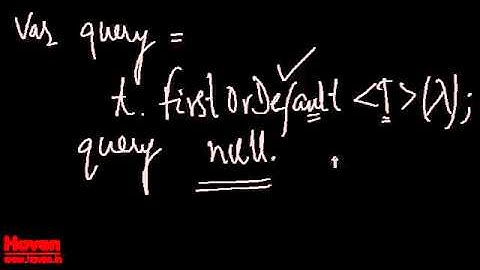 Var query =
t. firstOrDefault <T>(λ);
query null.
Hoven
www.hoven.in